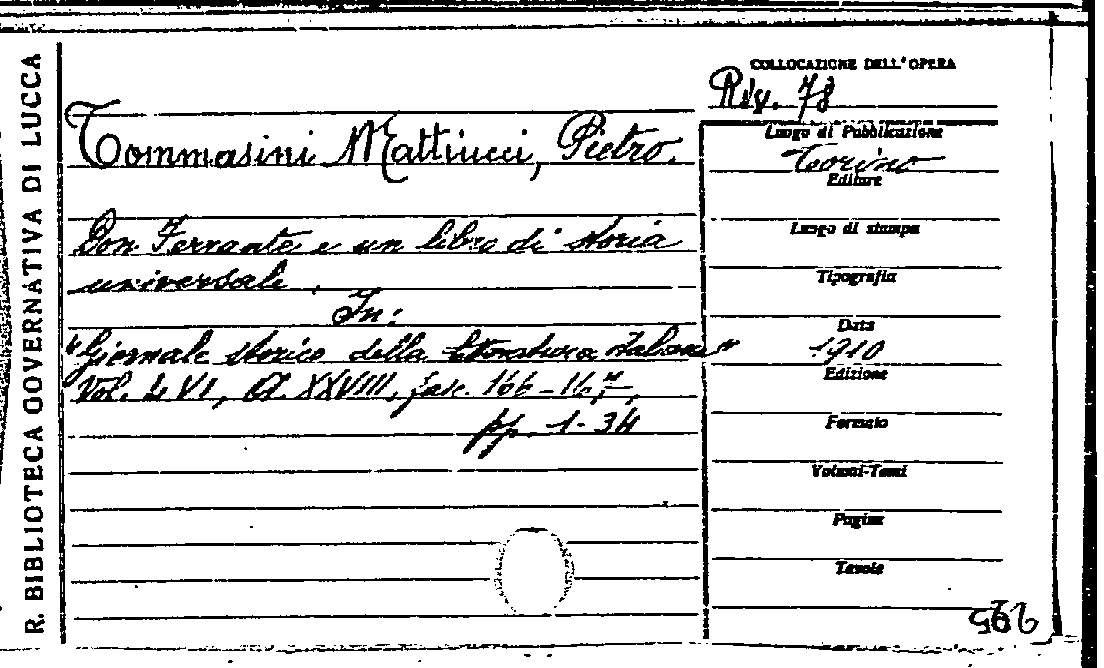 R. BIBLIOTECA GOVERNATIVA DI LUCCA
COLLOCAZIONE DELL'OPERA
Riv. 78
Tommasini Mattiucci, Pietro.
Don Ferrante e un libro di storia
universale.
In:
"Giornale storico della letteratura italiana"
Vol. LVI, A. XXVIII, fasc. 166-167,
pp. 1-34
Luogo di Pubblicazione
Torino
Editore
Luogo di stampa
Tipografia
Data
1910
Edizione
Formato
Volumi-Tomi
Pagine
Tavole